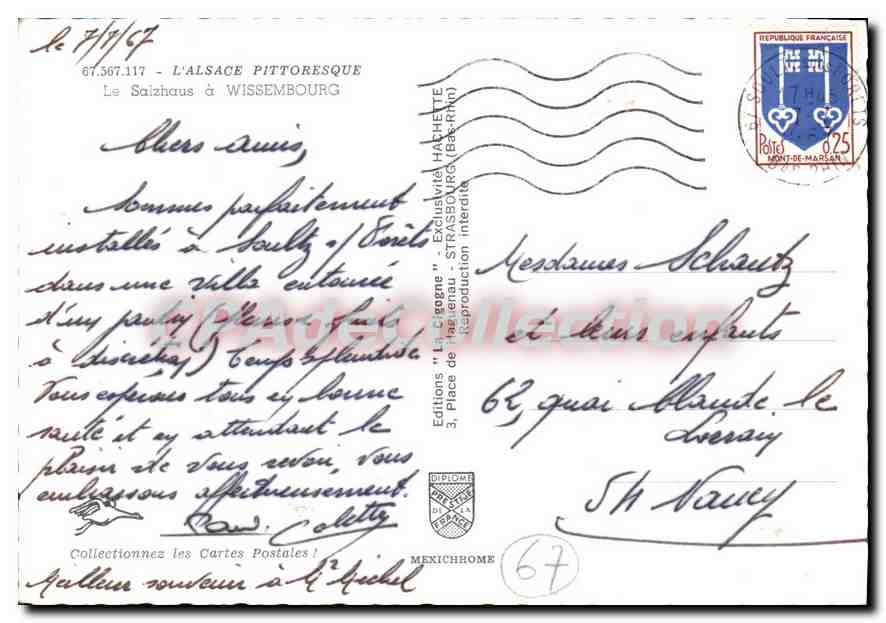 le 7/7/67
67.567.117 - L'ALSACE PITTORESQUE
Le Salzhaus à WISSEMBOURG
Chers amis,
Sommes parfaitement
installés à Soultz s/ Forêts
dans une villa entourée
d'un jardin (fleurs fruits
à discrétion) Temps splendide
Vous espérons tous en bonne
santé et en attendant le
plaisir de vous revoir, vous
embrassons affectueusement.
Colette
Collectionnez les Cartes Postales !
Meilleur souvenir à Mr Michel
Editions "La Cigogne" - Exclusivité HACHETTE
3, Place de Haguenau - STRASBOURG (Bas-Rhin)
Reproduction interdite
DIPLOME
PRESTIGE
DE LA
FRANCE
MEXICHROME
REPUBLIQUE FRANÇAISE
Postes 0,25
MONT-DE-MARSAN
SOULTZ S/ FORETS
BAS RHIN
Mesdames Schautz
et leurs enfants
62, quai Claude le
Lorrain
54 Nancy
67
APAdeCollection